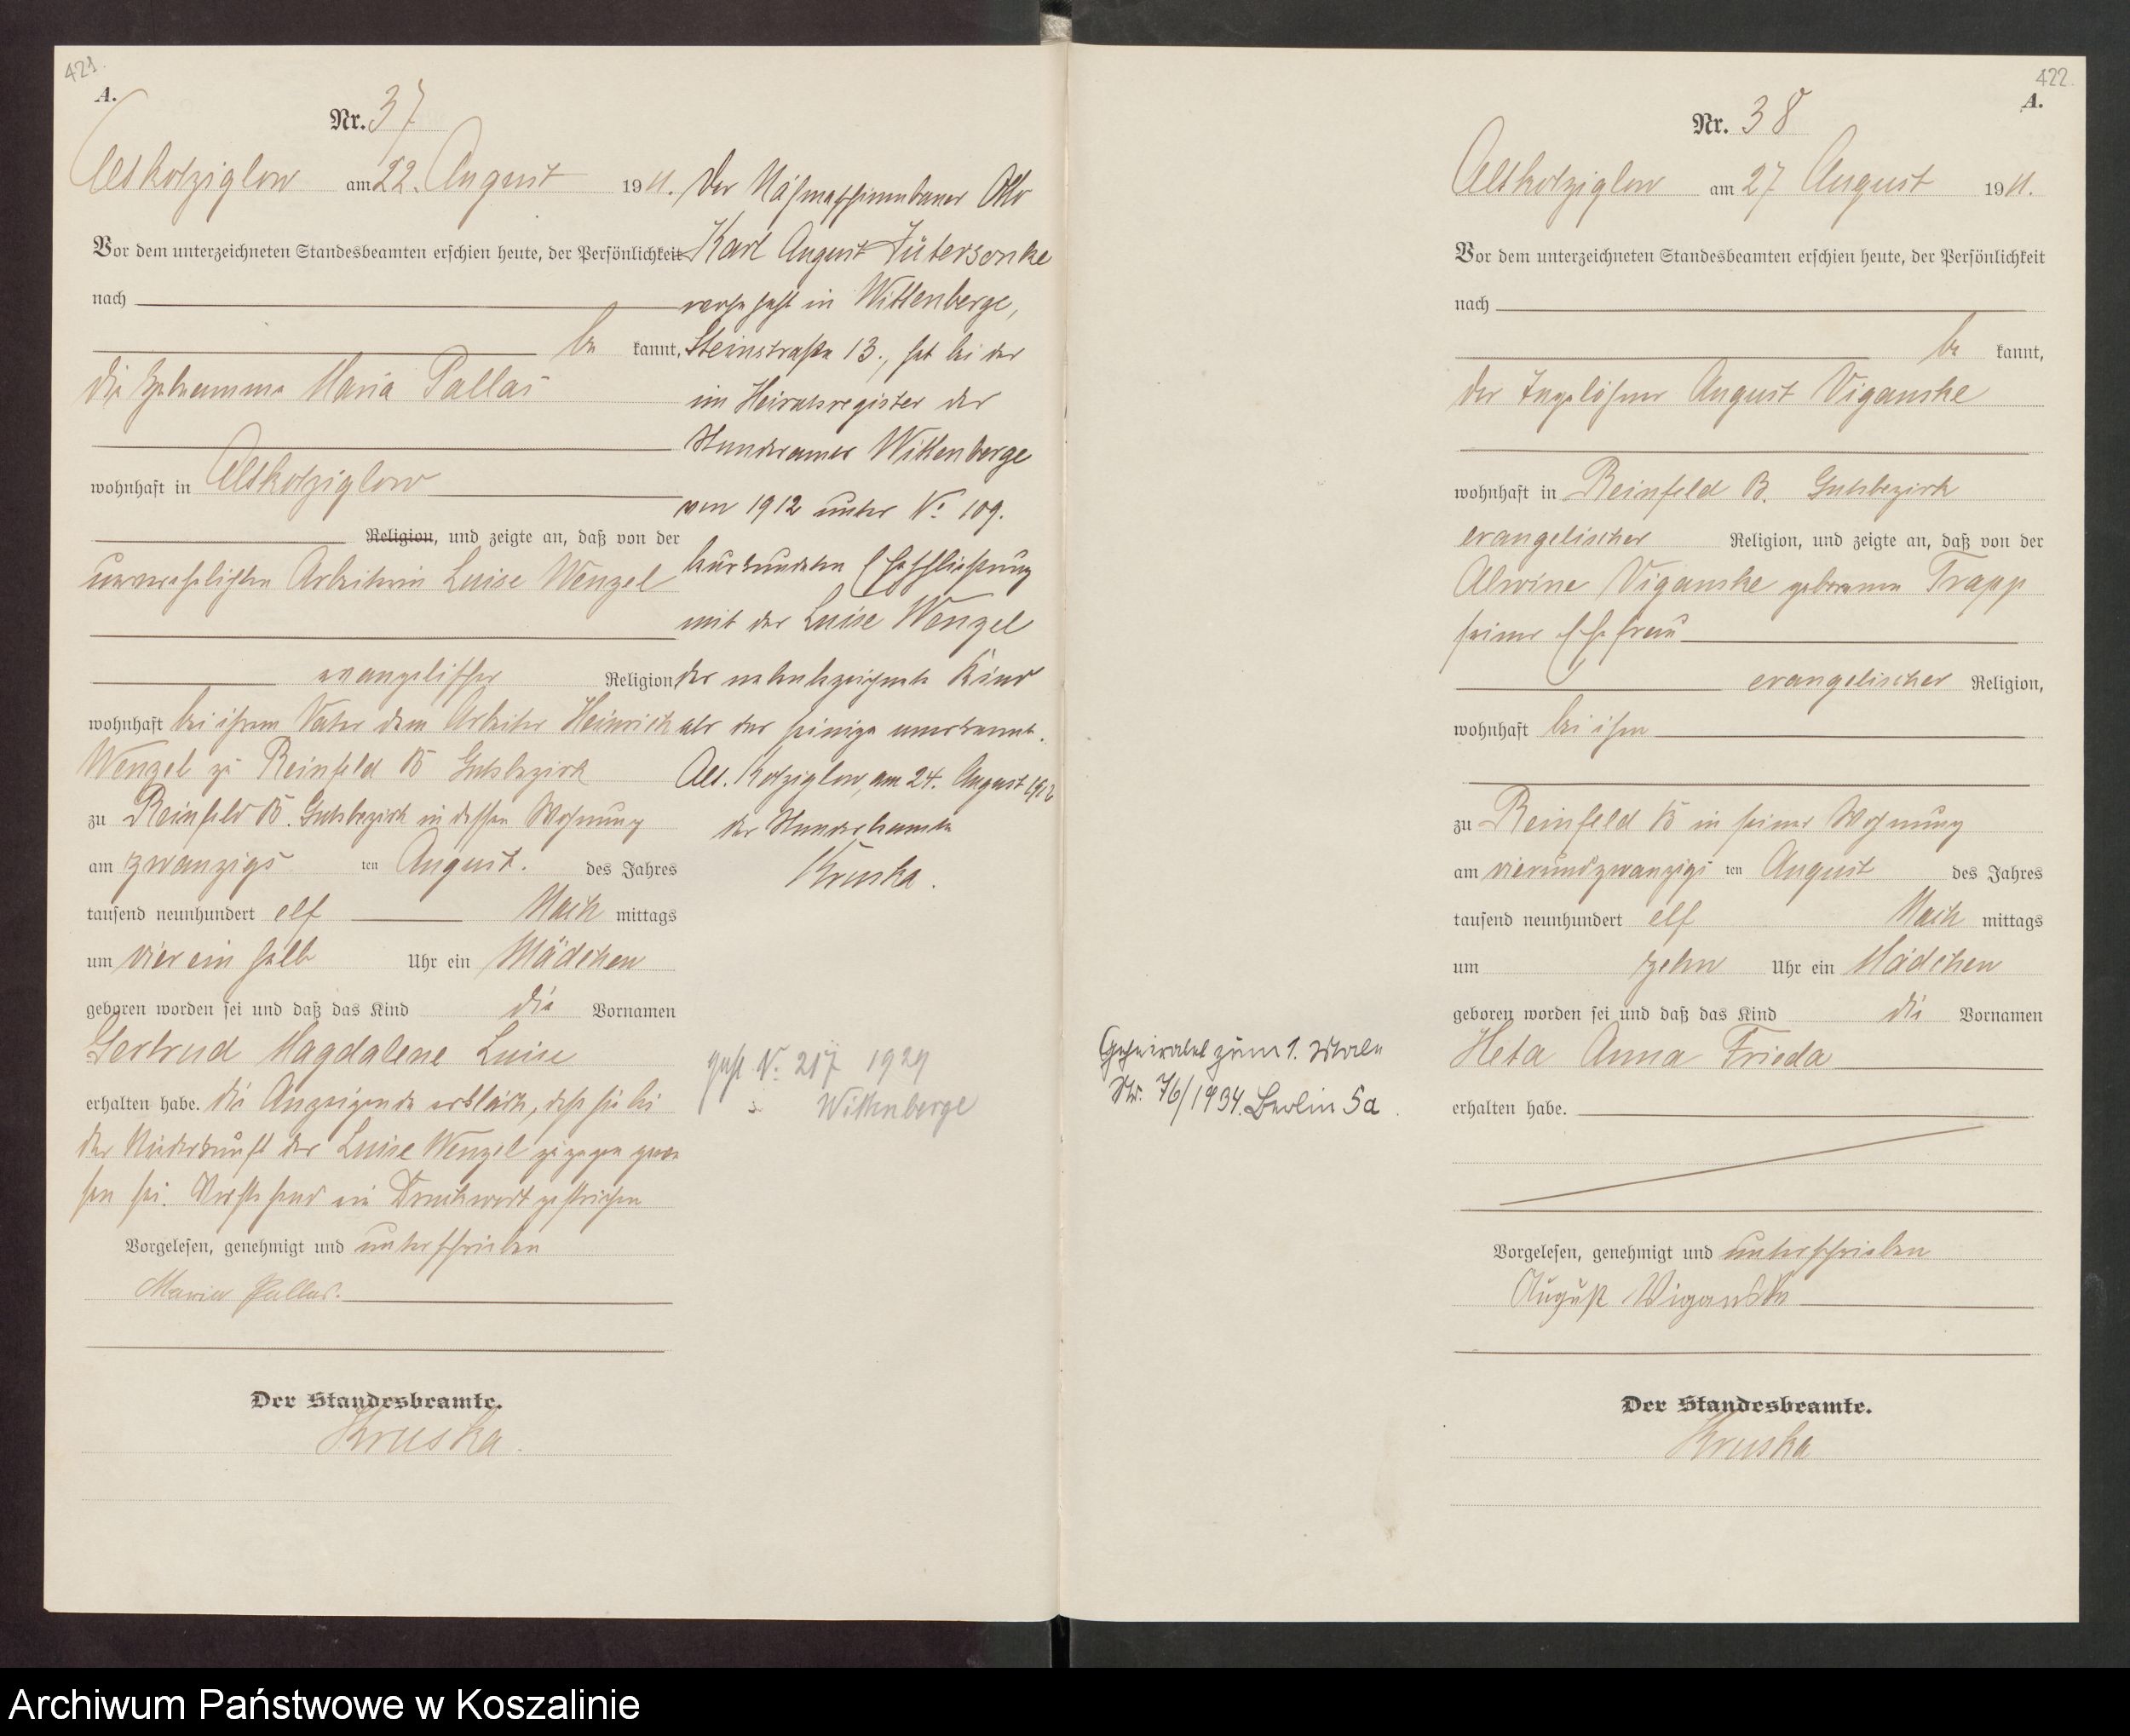 421.
A.
Nr. 37
Altkolziglow am 22. August 1911.
Vor dem unterzeichneten Standesbeamten erschien heute, der Persönlichkeit
nach
be kannt,
die Hebamme Maria Pallas
wohnhaft in Altkolziglow
Religion, und zeigte an, daß von der
unverehelichten Arbeiterin Luise Wenzel
evangelischer Religion
wohnhaft bei ihrem Vater dem Arbeiter Heinrich
Wenzel zu Reinfeld B Gutsbezirk
zu Reinfeld B. Gutsbezirk in dessen Wohnung
am zwanzigs ten August. des Jahres
tausend neunhundert elf Nach mittags
um vier ein halb Uhr ein Mädchen
geboren worden sei und daß das Kind die Vornamen
Gertrud Magdalene Luise
erhalten habe. Die Anzeigende erklärte, daß sie bei
der Niederkunft der Luise Wenzel zugegen gewe
sen sei. Vorstehend ein Druckwort gestrichen
Vorgelesen, genehmigt und unterschrieben
Maria Pallas.
Der Standesbeamte.
Kruska.
Der Nähmaschinenbauer Otto
Karl August Jütersonke
wohnhaft in Wittenberge,
Steinstraße 13., hat bei der
im Heiratsregister des
Standesamtes Wittenberge
von 1912 unter No 109.
beurkundeten Eheschließung
mit der Luise Wenzel
das nebenbezeichnete Kind
als das seinige anerkannt.
Alt. Kolziglow, am 24. August 1912
der Standesbeamte
Kruska.
geh. No. 217 1929
Wittenberge
422.
A.
Nr. 38
Altkolziglow am 27 August 1911.
Vor dem unterzeichneten Standesbeamten erschien heute, der Persönlichkeit
nach
be kannt,
der Tagelöhner August Viganske
wohnhaft in Reinfeld B. Gutsbezirk
evangelischer Religion, und zeigte an, daß von der
Alwine Viganske geborenen Trapp
seiner Ehefrau
evangelischer Religion,
wohnhaft bei ihm
zu Reinfeld B in seiner Wohnung
am vierundzwanzigs ten August des Jahres
tausend neunhundert elf Nach mittags
um zehn Uhr ein Mädchen
geboren worden sei und daß das Kind die Vornamen
Heta Anna Frieda
erhalten habe.
Vorgelesen, genehmigt und unterschrieben
August Wiganske
Der Standesbeamte.
Kruska
Geheiratet zum 1. Male
Nr. 76/1934. Berlin 5a.
Archiwum Państwowe w Koszalinie